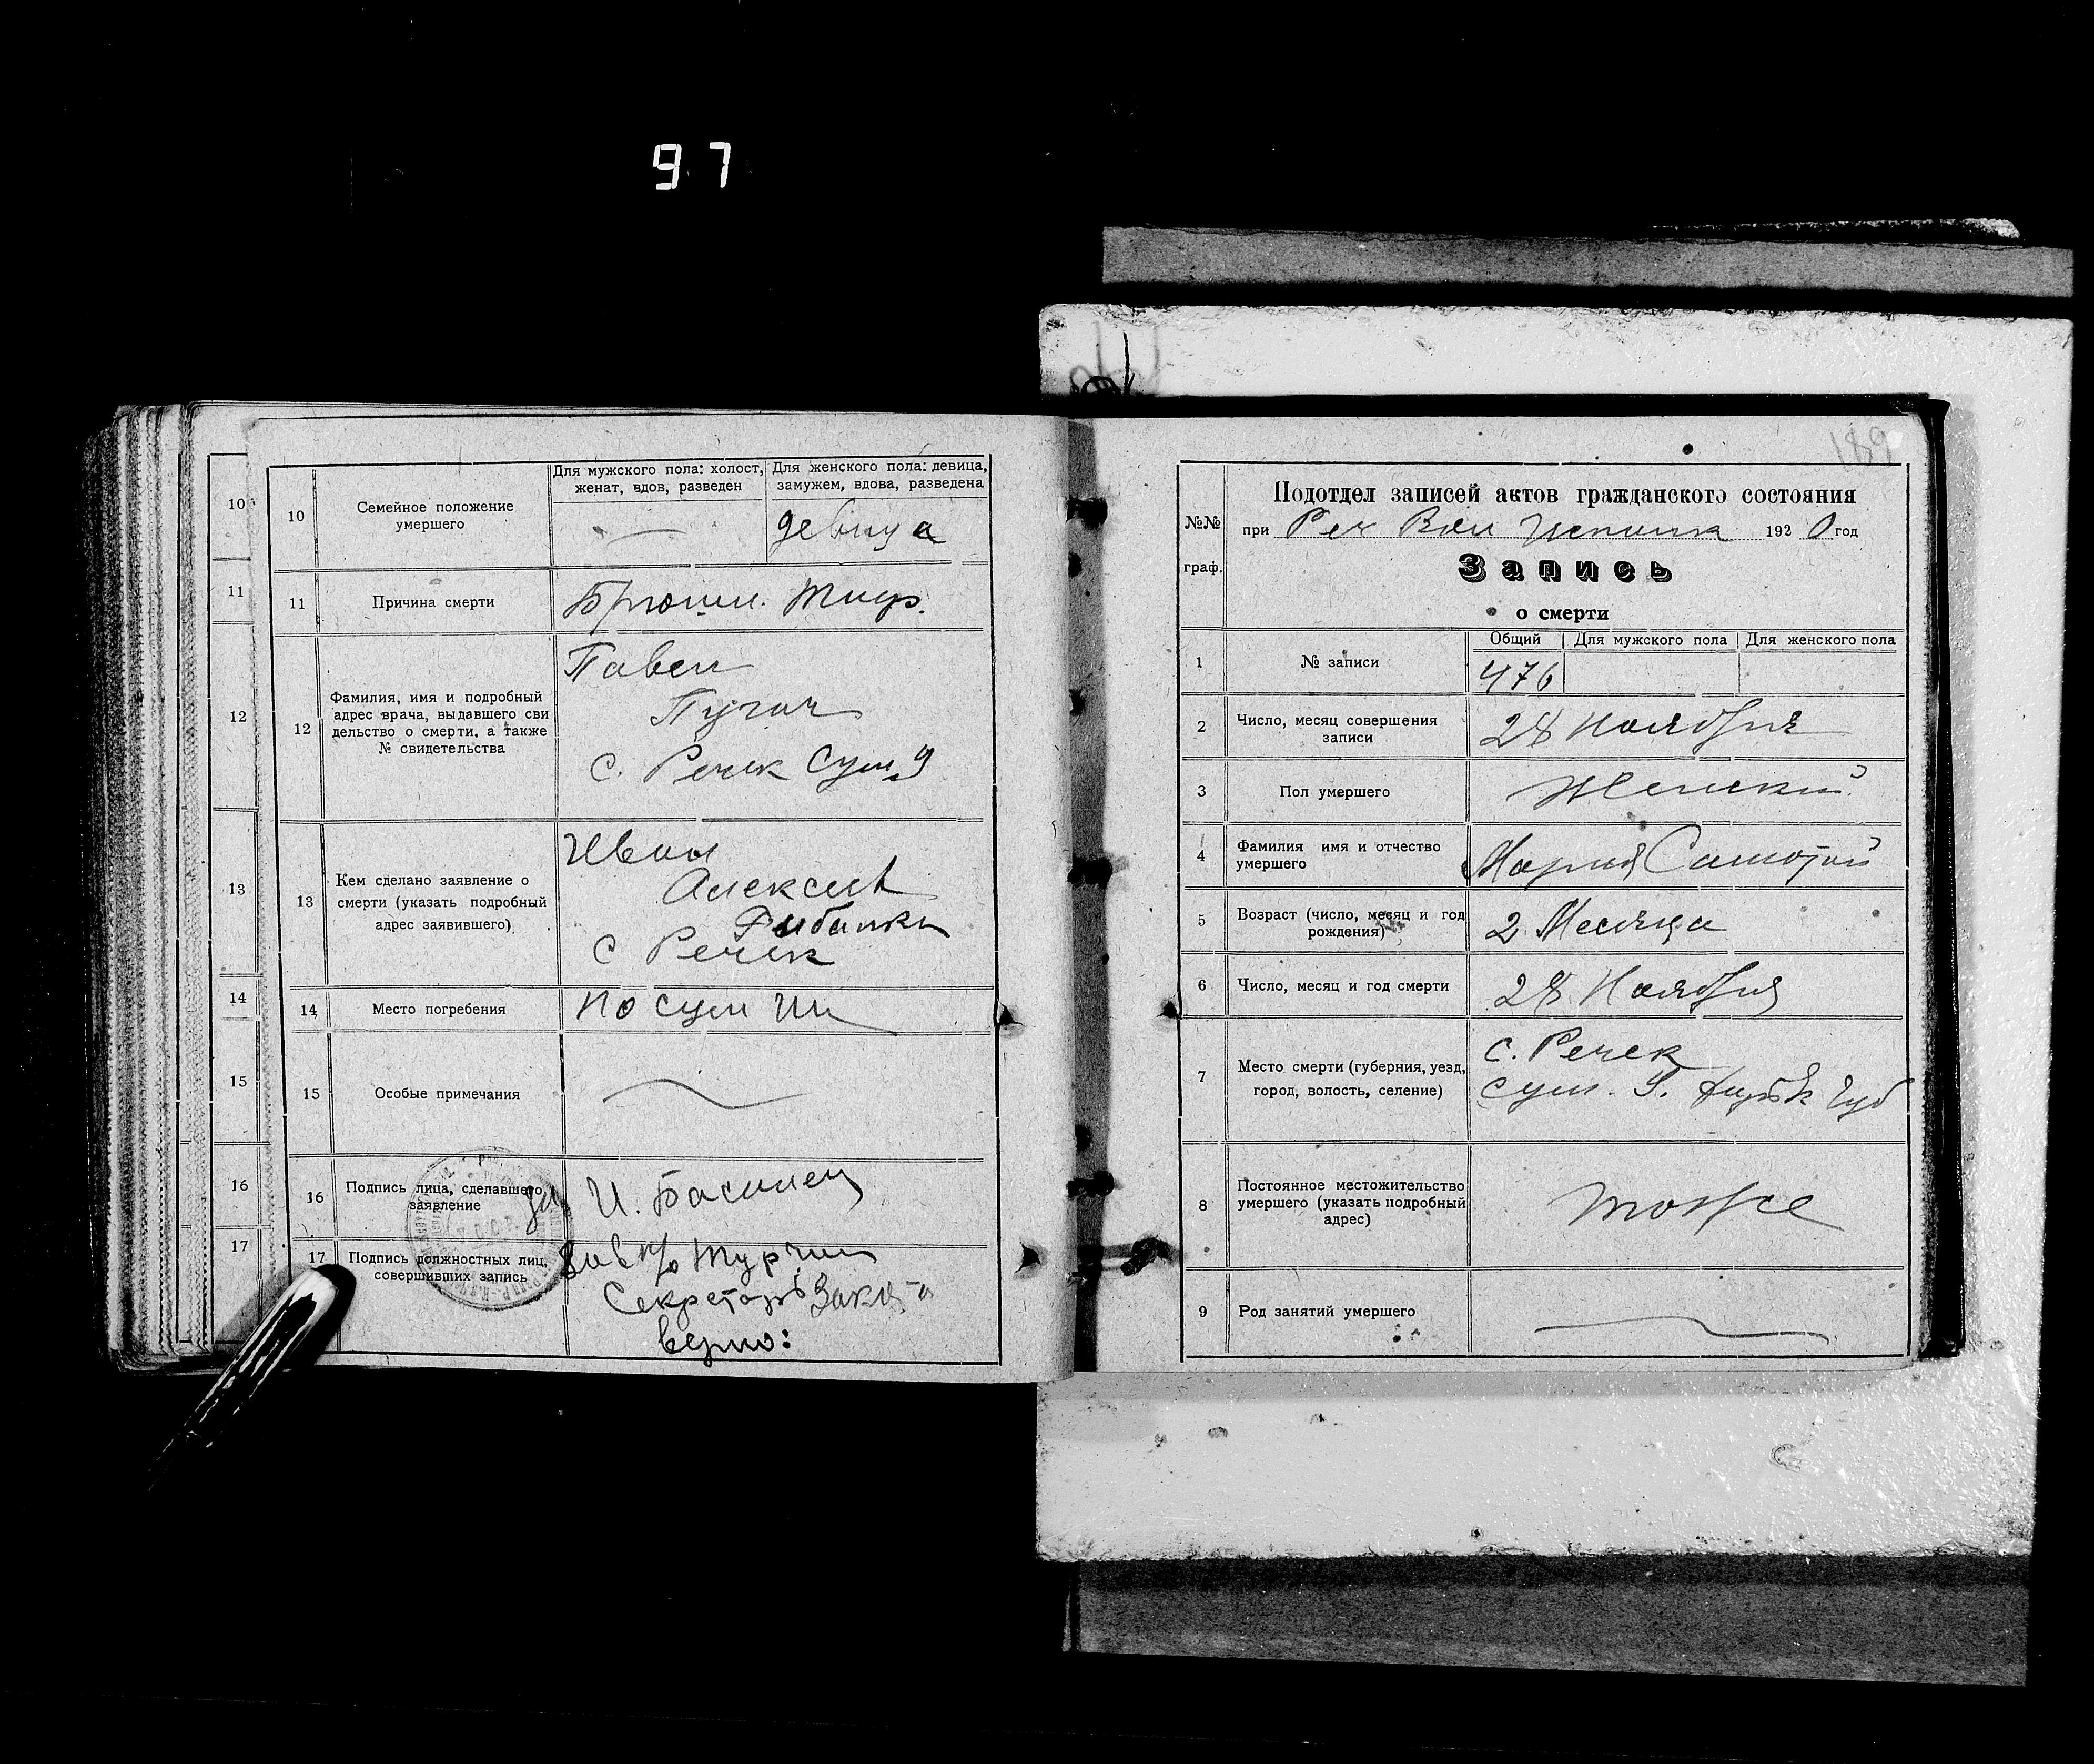 97
10
11
12
13
14
15
16
17
10
Семейное положение
умершего
Для мужского пола: холост,
женат, вдов, разведен
Для женского пола: девица,
замужем, вдова, разведена
девица
11
Причина смерти
Брюшн. Тиф.
12
Фамилия, имя и подробный
адрес врача, выдавшего сви
дельство о смерти, а также
№ свидетельства
Павел
Пугач
с. Речек Сум у
13
Кем сделано заявление о
смерти (указать подробный
адрес заявившего)
Иван
Алексеев
Рибалка
с Речек
14
Место погребения
15
Особые примечания
16
Подпись лица, сделавшего
заявление
за И.
17
Подпись должностных лиц,
совершивших запись
Зав п/о
Секретарь
верно:
189
№№
граф.
Подотдел записей актов гражданского состояния
при Реч Вол Исполк 1920 год
Запись
о смерти
1
№ записи
Общий
Для мужского пола
Для женского пола
476
2
Число, месяц совершения
записи
28 Ноября
3
Пол умершего
Женский
4
Фамилия имя и отчество
умершего
Мария
5
Возраст (число, месяц и год
рождения)
2 Месяца
6
Число, месяц и год смерти
28 Ноября
7
Место смерти (губерния, уезд,
город, волость, селение)
с. Речек
Сум. У. губ
8
Постоянное местожительство
умершего (указать подробный
адрес)
тоже
9
Род занятий умершего